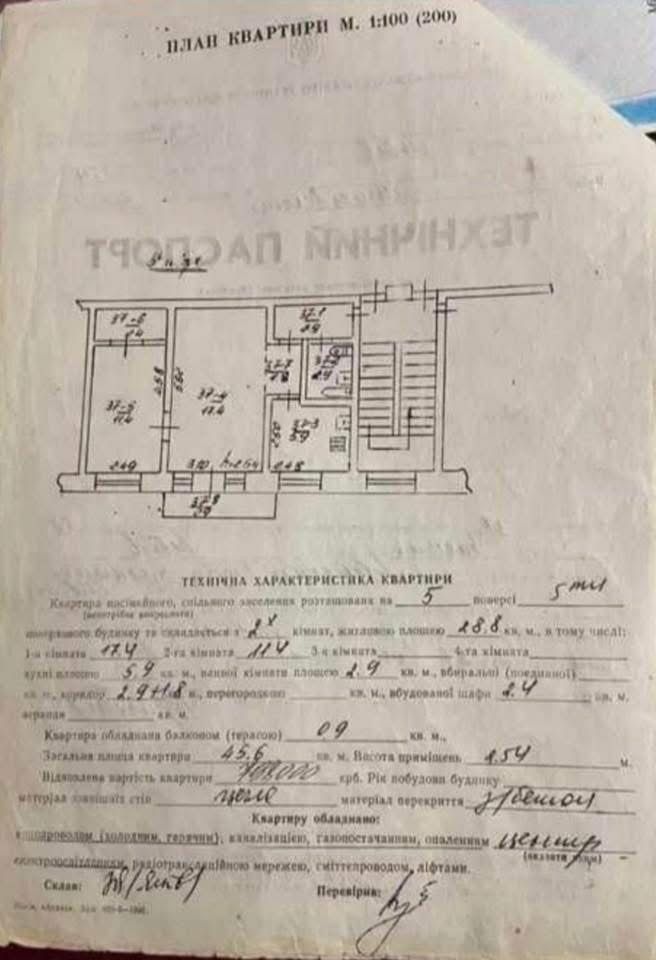 ПЛАН КВАРТИРИ М. 1:100 (200)
ТЕХНІЧНИЙ ПАСПОРТ
37-6
2.4
37-1
2.9
37-7
1.8
37-5
11.4
4.58
5.60
37-4
17.4
37-3
5.9
2.49
3.10
h=2.54
2.48
37-8
0.9
ТЕХНІЧНА ХАРАКТЕРИСТИКА КВАРТИРИ
Квартира посімейного, спільного заселення розташована на 5 поверсі 5ти
(непотрібне викреслити)
поверхового будинку та складається з 2х кімнат, житловою площею 28.8 кв. м., в тому числі:
1-а кімната 17.4 2-га кімната 11.4 3-я кімната 4-та кімната
кухні площею 5.9 кв. м., ванної кімнати площею 2.9 кв. м., вбиральні (поєднаної)
кв. м., коридор 2.9+1.8 м., перегородкою кв. м., вбудованої шафи 2.4 кв. м.
веранди кв. м.
Квартира обладнана балконом (терасою) 0.9 кв. м.,
Загальна площа квартири 45.6 кв. м. Висота приміщень 2.54 м.
Відновлена вартість квартири крб. Рік побудови будинку
матеріал зовнішніх стін цегла матеріал перекриття з/бетон
Квартиру обладнано:
водопроводом (холодним, гарячим), каналізацією, газопостачанням, опаленням центр
(вказати яким)
електроосвітленням, радіотрансляційною мережею, сміттєпроводом, ліфтами.
Склав: Перевірив: